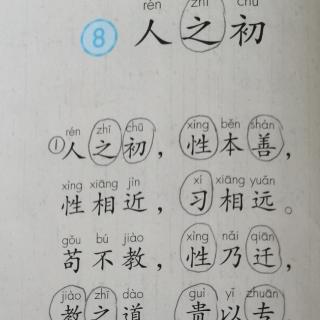 rén zhī chū
8 人之初
rén zhī chū xìng běn shàn
①人之初，性本善，
xìng xiāng jìn xí xiāng yuǎn
性相近，习相远。
gǒu bú jiào xìng nǎi qiān
苟不教，性乃迁，
jiào zhī dào guì yǐ zhuān
教之道，贵以专